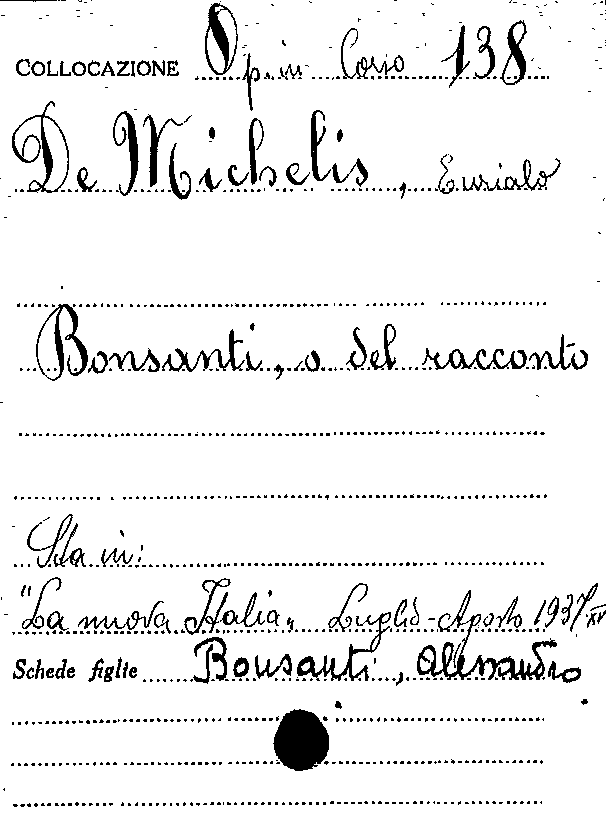 COLLOCAZIONE Op. in Corso 138
De Michelis, Eurialo
Bonsanti, o del racconto
Sta in:
"La nuova Italia„ Luglio-Agosto 1937 XV
Schede figlie Bonsanti, Alessandro